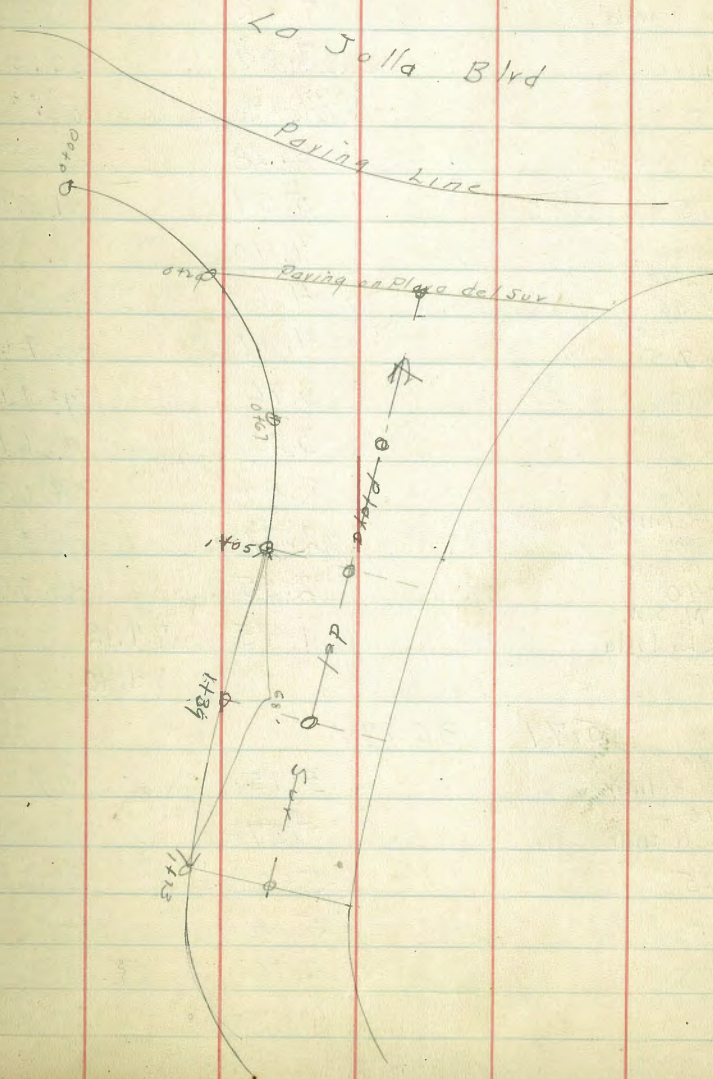 La Jolla Blvd
Paving Line
0+00
0+20
Paving on Playa del Sur
0+67
Playa
1+05
del
1+39
Sur
1+73